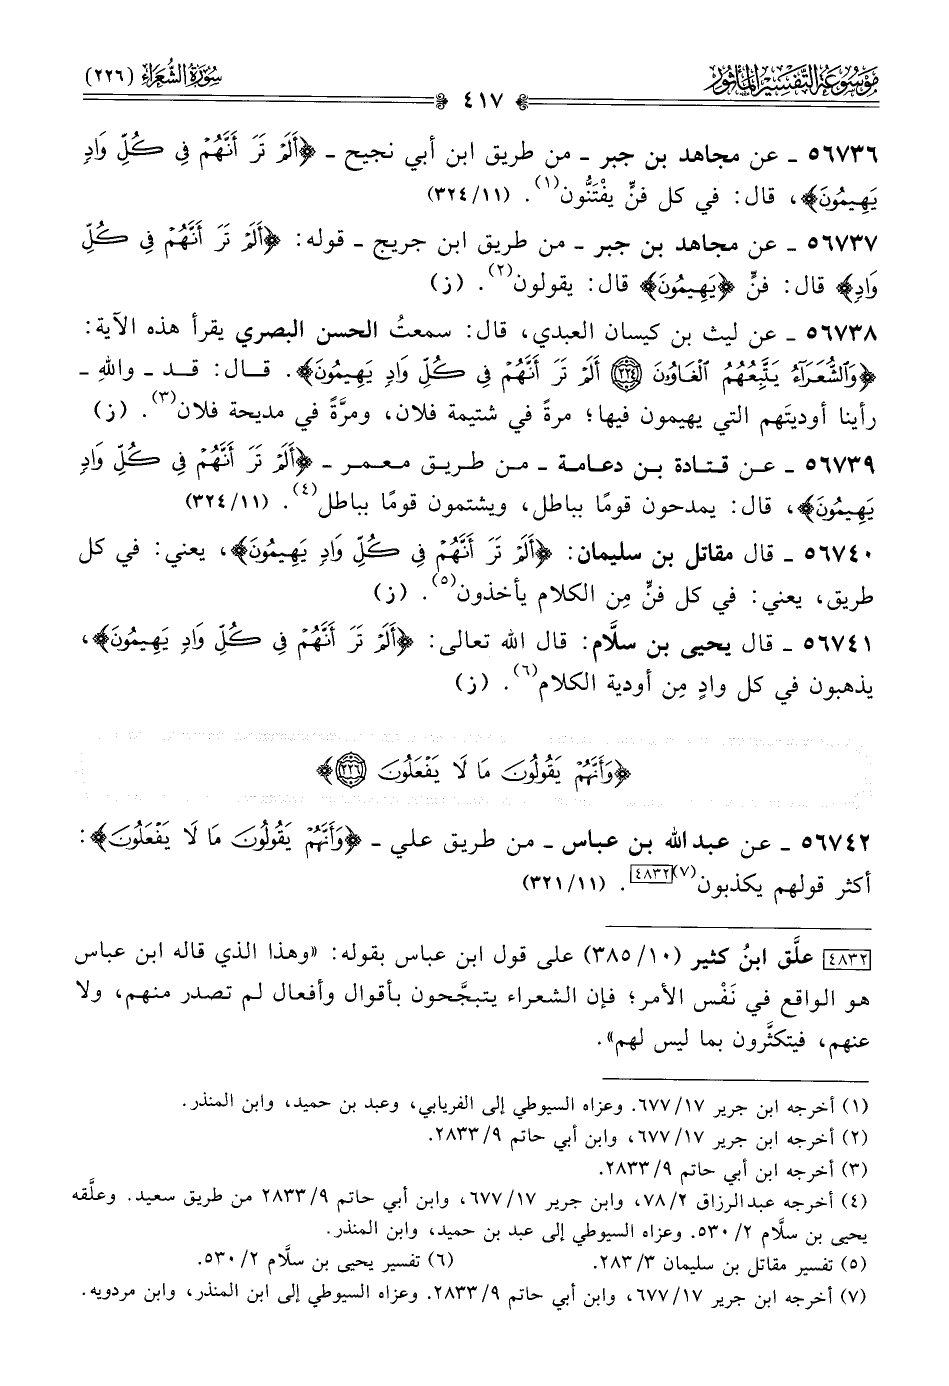 مَوْسُوعَةُ التَّفْسِيرِ المَأْثُورِ
سُورَةُ الشُّعَرَاءِ (٢٢٦)
٤١٧
٥٦٧٣٦ ـ عن مجاهد بن جبر ـ من طريق ابن أبي نجيح ـ ﴿أَلَمْ تَرَ أَنَّهُمْ فِي كُلِّ وَادٍ
يَهِيمُونَ﴾، قال: في كل فنٍّ يفْتَنُّون(١). (١١/ ٣٢٤)
٥٦٧٣٧ ـ عن مجاهد بن جبر ـ من طريق ابن جريج ـ قوله: ﴿أَلَمْ تَرَ أَنَّهُمْ فِي كُلِّ
وَادٍ﴾ قال: فنٍّ ﴿يَهِيمُونَ﴾ قال: يقولون(٢). (ز)
٥٦٧٣٨ ـ عن ليث بن كيسان العبدي، قال: سمعتُ الحسن البصري يقرأ هذه الآية:
﴿وَالشُّعَرَاءُ يَتَّبِعُهُمُ الْغَاوُونَ ٢٢٤ أَلَمْ تَرَ أَنَّهُمْ فِي كُلِّ وَادٍ يَهِيمُونَ﴾. قال: قد ـ واللهِ ـ
رأينا أوديتَهم التي يهيمون فيها؛ مرةً في شتيمة فلان، ومرَّةً في مديحة فلان(٣). (ز)
٥٦٧٣٩ ـ عن قتادة بن دعامة ـ من طريق معمر ـ ﴿أَلَمْ تَرَ أَنَّهُمْ فِي كُلِّ وَادٍ
يَهِيمُونَ﴾، قال: يمدحون قومًا بباطل، ويشتمون قومًا بباطل(٤). (١١/ ٣٢٤)
٥٦٧٤٠ ـ قال مقاتل بن سليمان: ﴿أَلَمْ تَرَ أَنَّهُمْ فِي كُلِّ وَادٍ يَهِيمُونَ﴾، يعني: في كل
طريق، يعني: في كل فنٍّ مِن الكلام يأخذون(٥). (ز)
٥٦٧٤١ ـ قال يحيى بن سلَّام: قال الله تعالى: ﴿أَلَمْ تَرَ أَنَّهُمْ فِي كُلِّ وَادٍ يَهِيمُونَ﴾،
يذهبون في كل وادٍ مِن أودية الكلام(٦). (ز)
﴿وَأَنَّهُمْ يَقُولُونَ مَا لَا يَفْعَلُونَ ٢٢٦﴾
٥٦٧٤٢ ـ عن عبد الله بن عباس ـ من طريق علي ـ ﴿وَأَنَّهُمْ يَقُولُونَ مَا لَا يَفْعَلُونَ﴾:
أكثر قولهم يكذبون(٧)[٤٨٣٢]. (١١/ ٣٢١)
[٤٨٣٢] علَّق ابنُ كثير (١٠/ ٣٨٥) على قول ابن عباس بقوله: «وهذا الذي قاله ابن عباس
هو الواقع في نَفْس الأمر؛ فإن الشعراء يتبجَّحون بأقوال وأفعال لم تصدر منهم، ولا
عنهم، فيتكثَّرون بما ليس لهم».
(١) أخرجه ابن جرير ١٧/ ٦٧٧. وعزاه السيوطي إلى الفريابي، وعبد بن حميد، وابن المنذر.
(٢) أخرجه ابن جرير ١٧/ ٦٧٧، وابن أبي حاتم ٩/ ٢٨٣٣.
(٣) أخرجه ابن أبي حاتم ٩/ ٢٨٣٣.
(٤) أخرجه عبد الرزاق ٢/ ٧٨، وابن جرير ١٧/ ٦٧٧، وابن أبي حاتم ٩/ ٢٨٣٣ من طريق سعيد. وعلَّقه
يحيى بن سلَّام ٢/ ٥٣٠. وعزاه السيوطي إلى عبد بن حميد، وابن المنذر.
(٥) تفسير مقاتل بن سليمان ٣/ ٢٨٣. (٦) تفسير يحيى بن سلَّام ٢/ ٥٣٠.
(٧) أخرجه ابن جرير ١٧/ ٦٧٧، وابن أبي حاتم ٩/ ٢٨٣٣. وعزاه السيوطي إلى ابن المنذر، وابن مردويه.